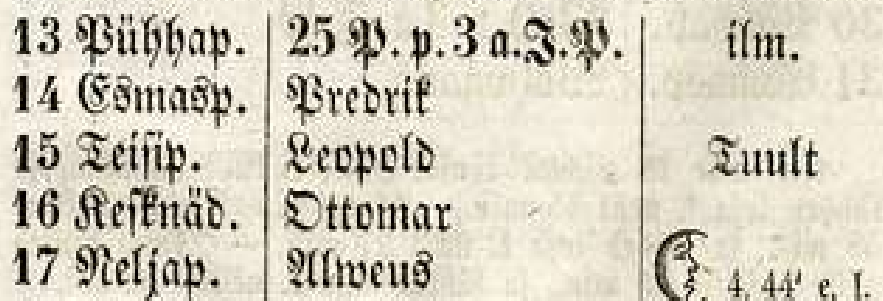 13 Pühhap. 25 P. p. 3 a. J. P. ilm.
14 Esmasp. Predrik
15 Teisip. Leopold Tuult
16 Keſknäd. Ottomar
17 Neljap. Alweus 4, 44' e. l.